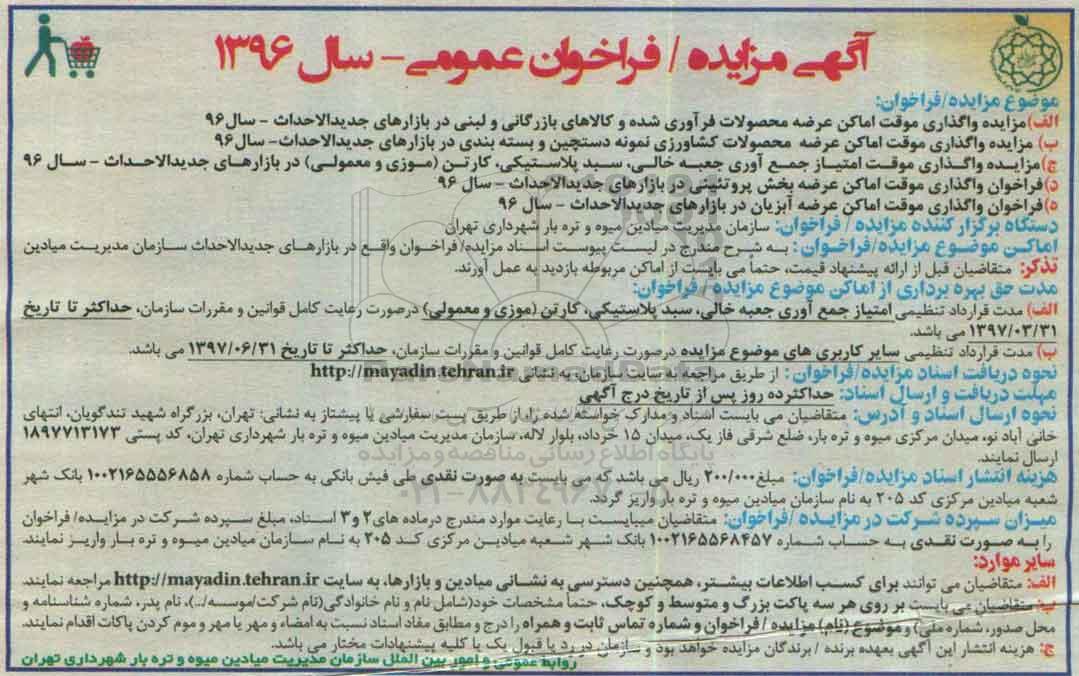 آگهی مزایده / فراخوان عمومی - سال ۱۳۹۶
موضوع مزایده/فراخوان:
الف) مزایده واگذاری موقت اماکن عرضه محصولات فرآوری شده و کالاهای بازرگانی و لبنی در بازارهای جدیدالاحداث - سال ۹۶
ب) مزایده واگذاری موقت اماکن عرضه محصولات کشاورزی نمونه دستچین و بسته بندی در بازارهای جدیدالاحداث- سال ۹۶
ج) مزایده واگذاری موقت امتیاز جمع آوری جعبه خالی، سبد پلاستیکی، کارتن (موزی و معمولی) در بازارهای جدیدالاحداث - سال ۹۶
د) فراخوان واگذاری موقت اماکن عرضه بخش پروتئینی در بازارهای جدیدالاحداث - سال ۹۶
ه) فراخوان واگذاری موقت اماکن عرضه آبزیان در بازارهای جدیدالاحداث - سال ۹۶
دستگاه برگزار کننده مزایده / فراخوان: سازمان مدیریت میادین میوه و تره بار شهرداری تهران
اماکن موضوع مزایده/فراخوان: به شرح مندرج در لیست پیوست اسناد مزایده/ فراخوان واقع در بازارهای جدیدالاحداث سازمان مدیریت میادین
تذکر: متقاضیان قبل از ارائه پیشنهاد قیمت، حتماً می بایست از اماکن مربوطه بازدید به عمل آورند.
مدت حق بهره برداری از اماکن موضوع مزایده / فراخوان:
الف) مدت قرارداد تنظیمی امتیاز جمع آوری جعبه خالی، سبد پلاستیکی، کارتن (موزی و معمولی) درصورت رعایت کامل قوانین و مقررات سازمان، حداکثر تا تاریخ
۱۳۹۷/۰۳/۳۱ می باشد.
ب) مدت قرارداد تنظیمی سایر کاربری های موضوع مزایده درصورت رعایت کامل قوانین و مقررات سازمان، حداکثر تا تاریخ ۱۳۹۷/۰۶/۳۱ می باشد.
نحوه دریافت اسناد مزایده/فراخوان: از طریق مراجعه به سایت سازمان، به نشانی http://mayadin.tehran.ir
مهلت دریافت و ارسال اسناد: حداکثر ده روز پس از تاریخ درج آگهی
نحوه ارسال اسناد و آدرس: متقاضیان می بایست اسناد و مدارک خواسته شده را، از طریق پست سفارشی یا پیشتاز به نشانی: تهران، بزرگراه شهید تندگویان، انتهای
خانی آباد نو، میدان مرکزی میوه و تره بار، ضلع شرقی فاز یک، میدان ۱۵ خرداد، بلوار لاله، سازمان مدیریت میادین میوه و تره بار شهرداری تهران، کد پستی ۱۸۹۷۷۱۳۱۷۳
ارسال نمایند.
هزینه انتشار اسناد مزایده/فراخوان: مبلغ ۲۰۰/۰۰۰ ریال می باشد که می بایست به صورت نقدی طی فیش بانکی به حساب شماره ۱۰۰۲۱۶۵۵۵۶۸۵۸ بانک شهر
شعبه میادین مرکزی کد ۲۰۵ به نام سازمان میادین میوه و تره بار واریز گردد.
میزان سپرده شرکت در مزایده /فراخوان: متقاضیان میبایست با رعایت موارد مندرج درماده های ۲ و ۳ اسناد، مبلغ سپرده شرکت در مزایده/ فراخوان
را به صورت نقدی به حساب شماره ۱۰۰۲۱۶۵۵۶۸۴۵۷ بانک شهر شعبه میادین مرکزی کد ۲۰۵ به نام سازمان میادین میوه و تره بار واریز نمایند.
سایر موارد:
الف: متقاضیان می توانند برای کسب اطلاعات بیشتر، همچنین دسترسی به نشانی میادین و بازارها، به سایت http://mayadin.tehran.ir مراجعه نمایند.
ب: متقاضیان می بایست بر روی هر سه پاکت بزرگ و متوسط و کوچک، حتماً مشخصات خود(شامل نام و نام خانوادگی(نام شرکت/موسسه/..)، نام پدر، شماره شناسنامه و
محل صدور، شماره ملی) و موضوع (نام) مزایده / فراخوان و شماره تماس ثابت و همراه را درج و مطابق مفاد اسناد نسبت به امضاء و مهر یا مهر و موم کردن پاکات اقدام نمایند.
ج: هزینه انتشار این آگهی بعهده برنده / برندگان مزایده خواهد بود و سازمان در رد یا قبول یک یا کلیه پیشنهادات مختار می باشد.
روابط عمومی و امور بین الملل سازمان مدیریت میادین میوه و تره بار شهرداری تهران
پایگاه اطلاع رسانی مناقصه و مزایده